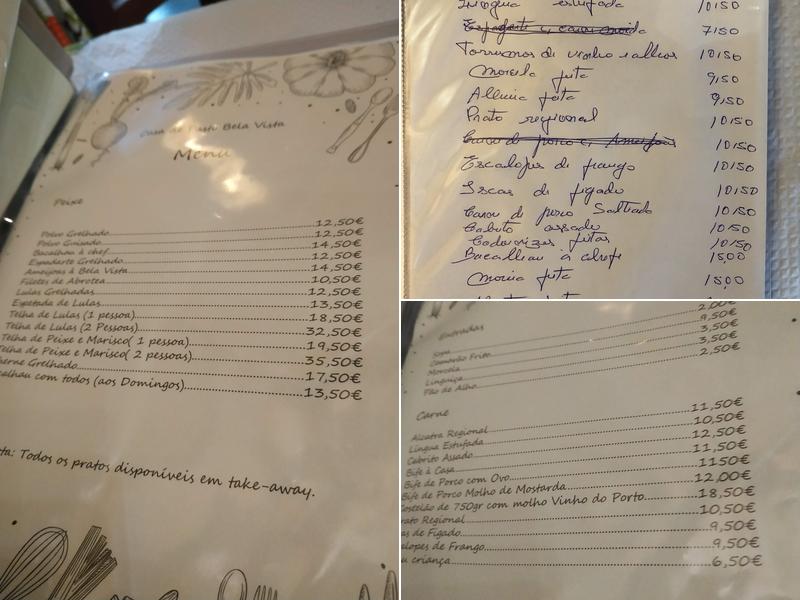 Casa de Pasto Bela Vista
Menu
Peixe
Polvo Grelhado 12,50€
Polvo Guisado 12,50€
Bacalhau à chef 14,50€
Espadarte Grelhado 12,50€
Ameijoas à Bela Vista 14,50€
Filetes de Abrotea 10,50€
Lulas Grelhadas 12,50€
Espetada de Lulas 13,50€
Telha de Lulas (1 pessoa) 18,50€
Telha de Lulas (2 Pessoas) 32,50€
Telha de Peixe e Marisco( 1 pessoa) 19,50€
Telha de Peixe e Marisco( 2 pessoas) 35,50€
herne Grelhado 17,50€
alhau com todos (aos Domingos) 13,50€
ta: Todos os pratos disponíveis em take-away.
estufada 10,50
7,50
Torresmos de vinho e alhos 10,50
Morcela frita 9,50
Alheira frita 9,50
Prato regional 10,50
10,50
Escalopes de frango 10,50
Iscas de figado 10,50
Carne de porco Salteado 10,50
Cabrito assado 10,50
Codornizes fritas 10,50
Bacalhau à chefe 15,00
Moreia frita 15,00
Entradas
Sopa 2,00€
Camarão Frito 9,50€
Morcela 3,50€
Linguiça 3,50€
Pão de Alho 2,50€
Carne
Alcatra Regional 11,50€
Lingua Estufada 10,50€
Cabrito Assado 12,50€
Bife à Casa 11,50€
Bife de Porco com Ovo 1150€
Bife de Porco Molho de Mostarda 12,00€
de 750gr com molho Vinho do Porto 18,50€
rato Regional 10,50€
as de Figado 9,50€
elopes de Frango 9,50€
u criança 6,50€